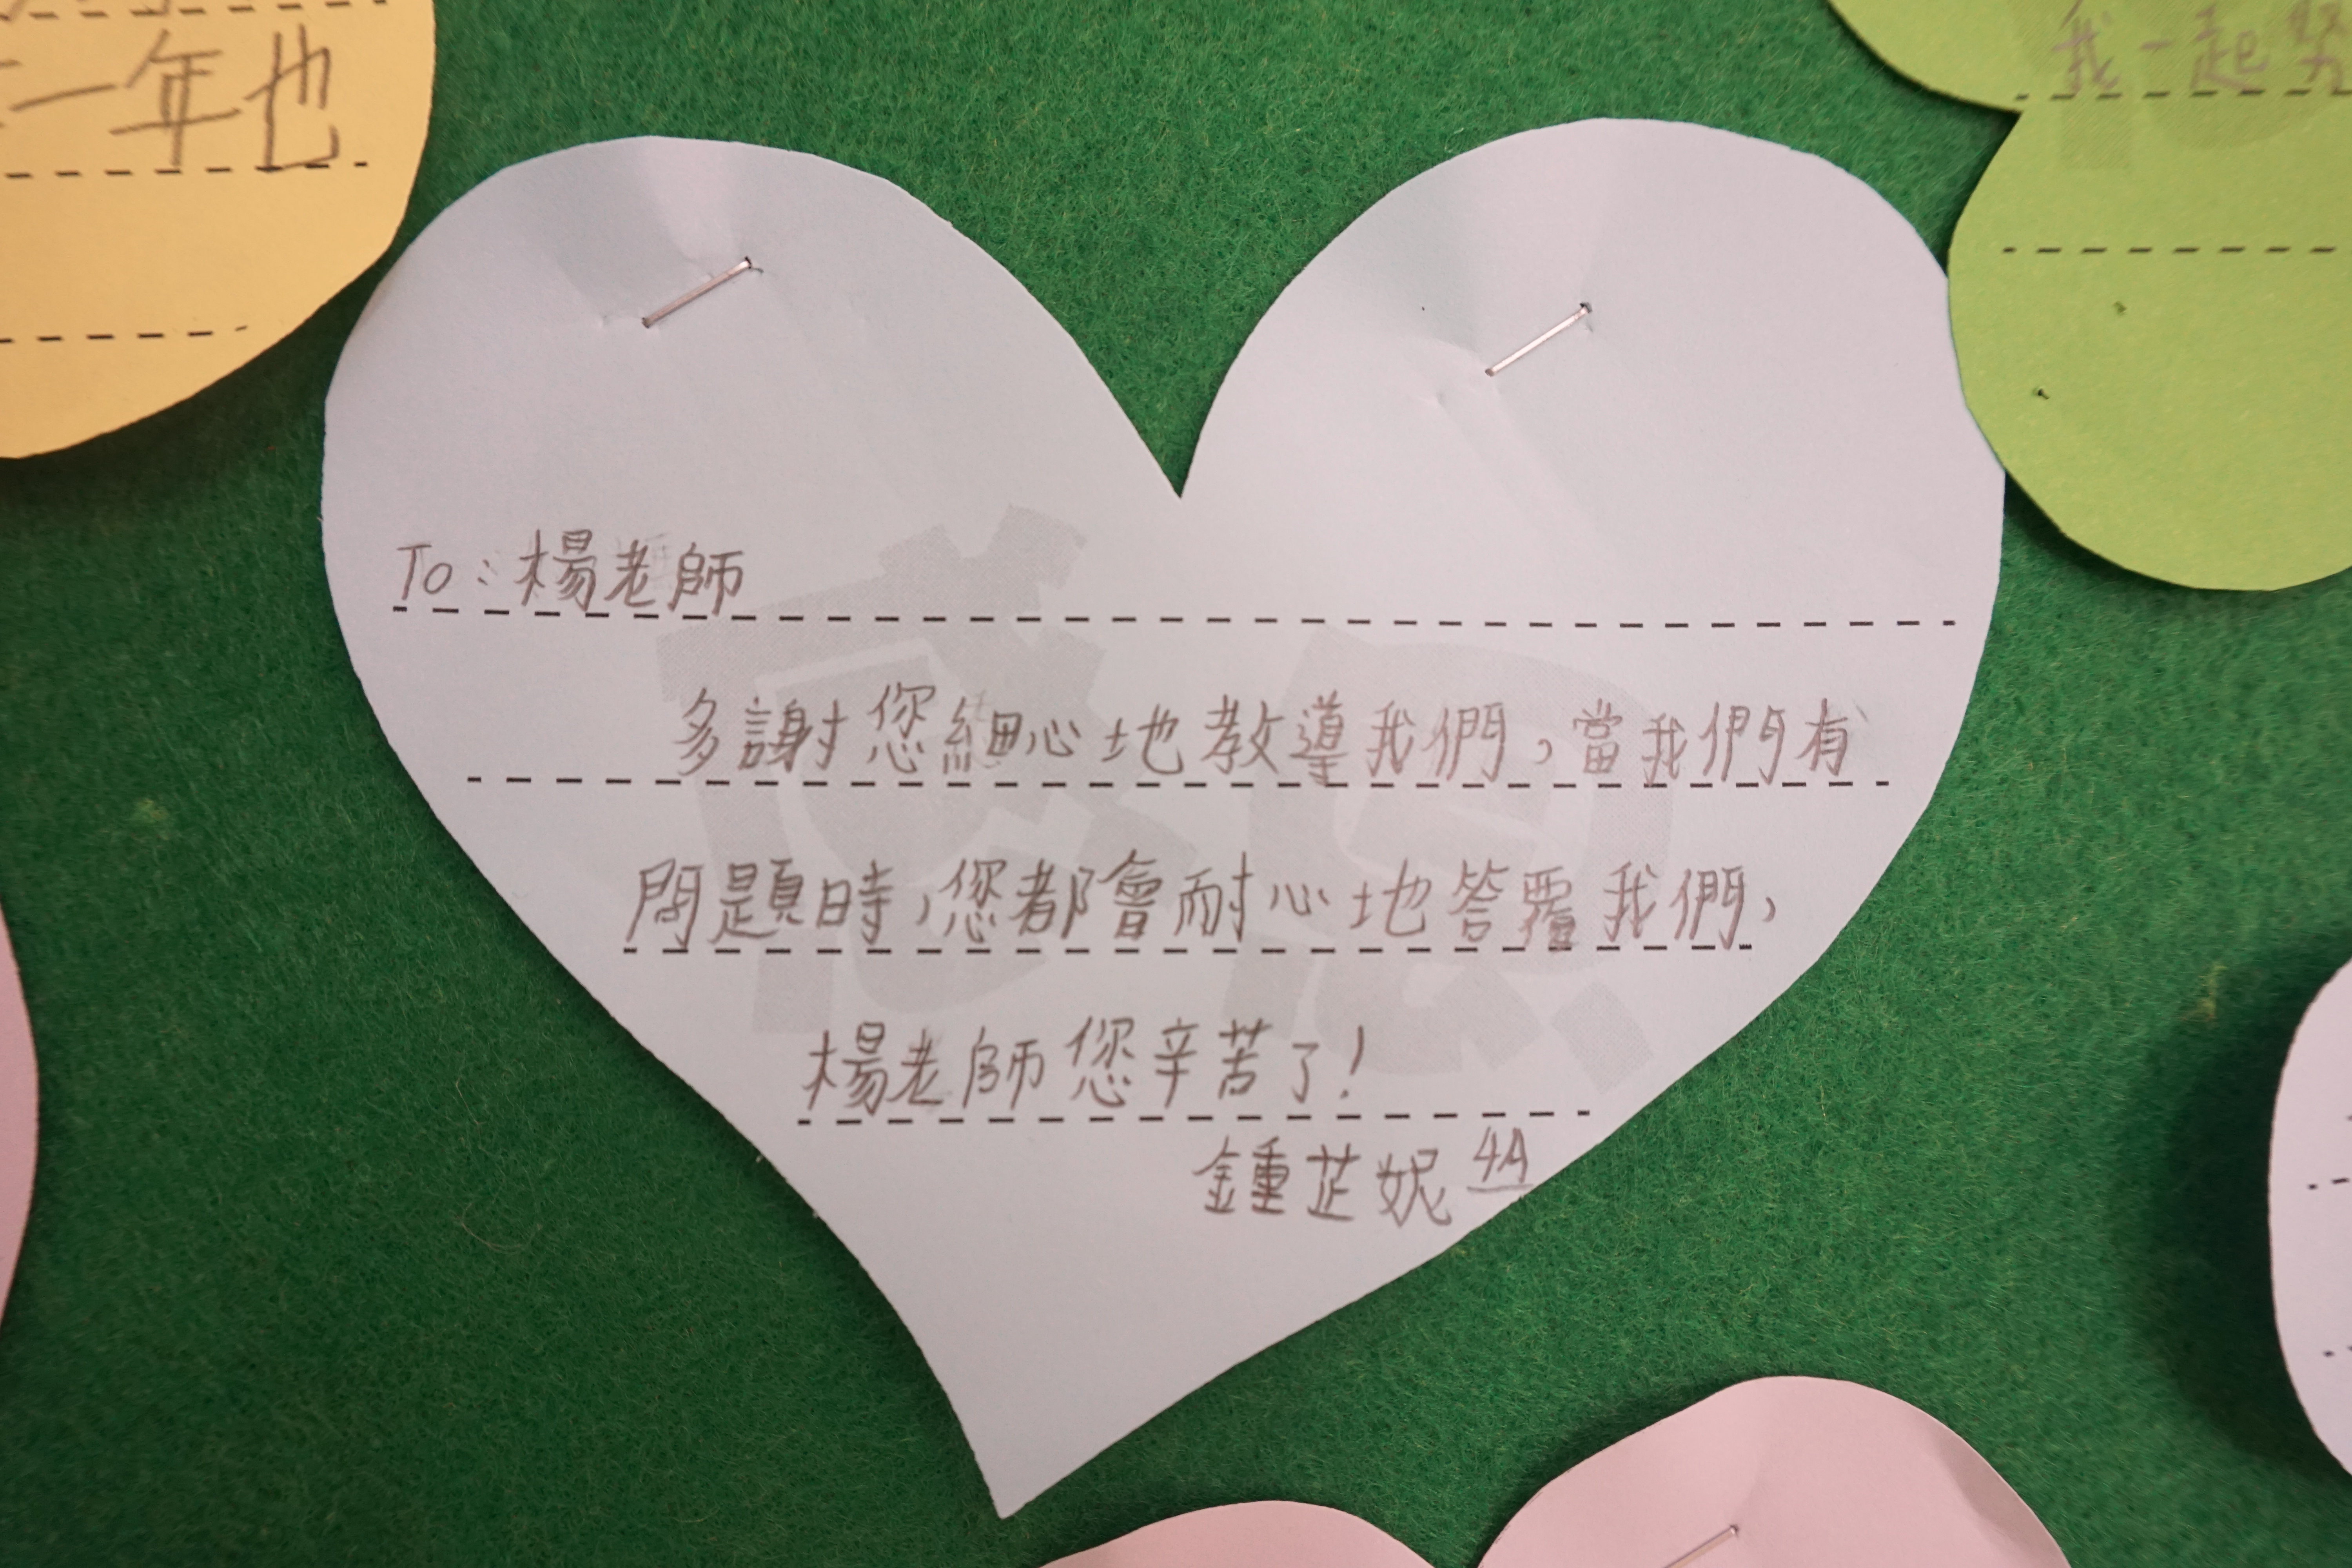 一年也
我一起努
感恩
To：楊老師
多謝您細心地教導我們，當我們有
問題時，您都會耐心地答覆我們，
楊老師您辛苦了！
鍾芷妮 4A